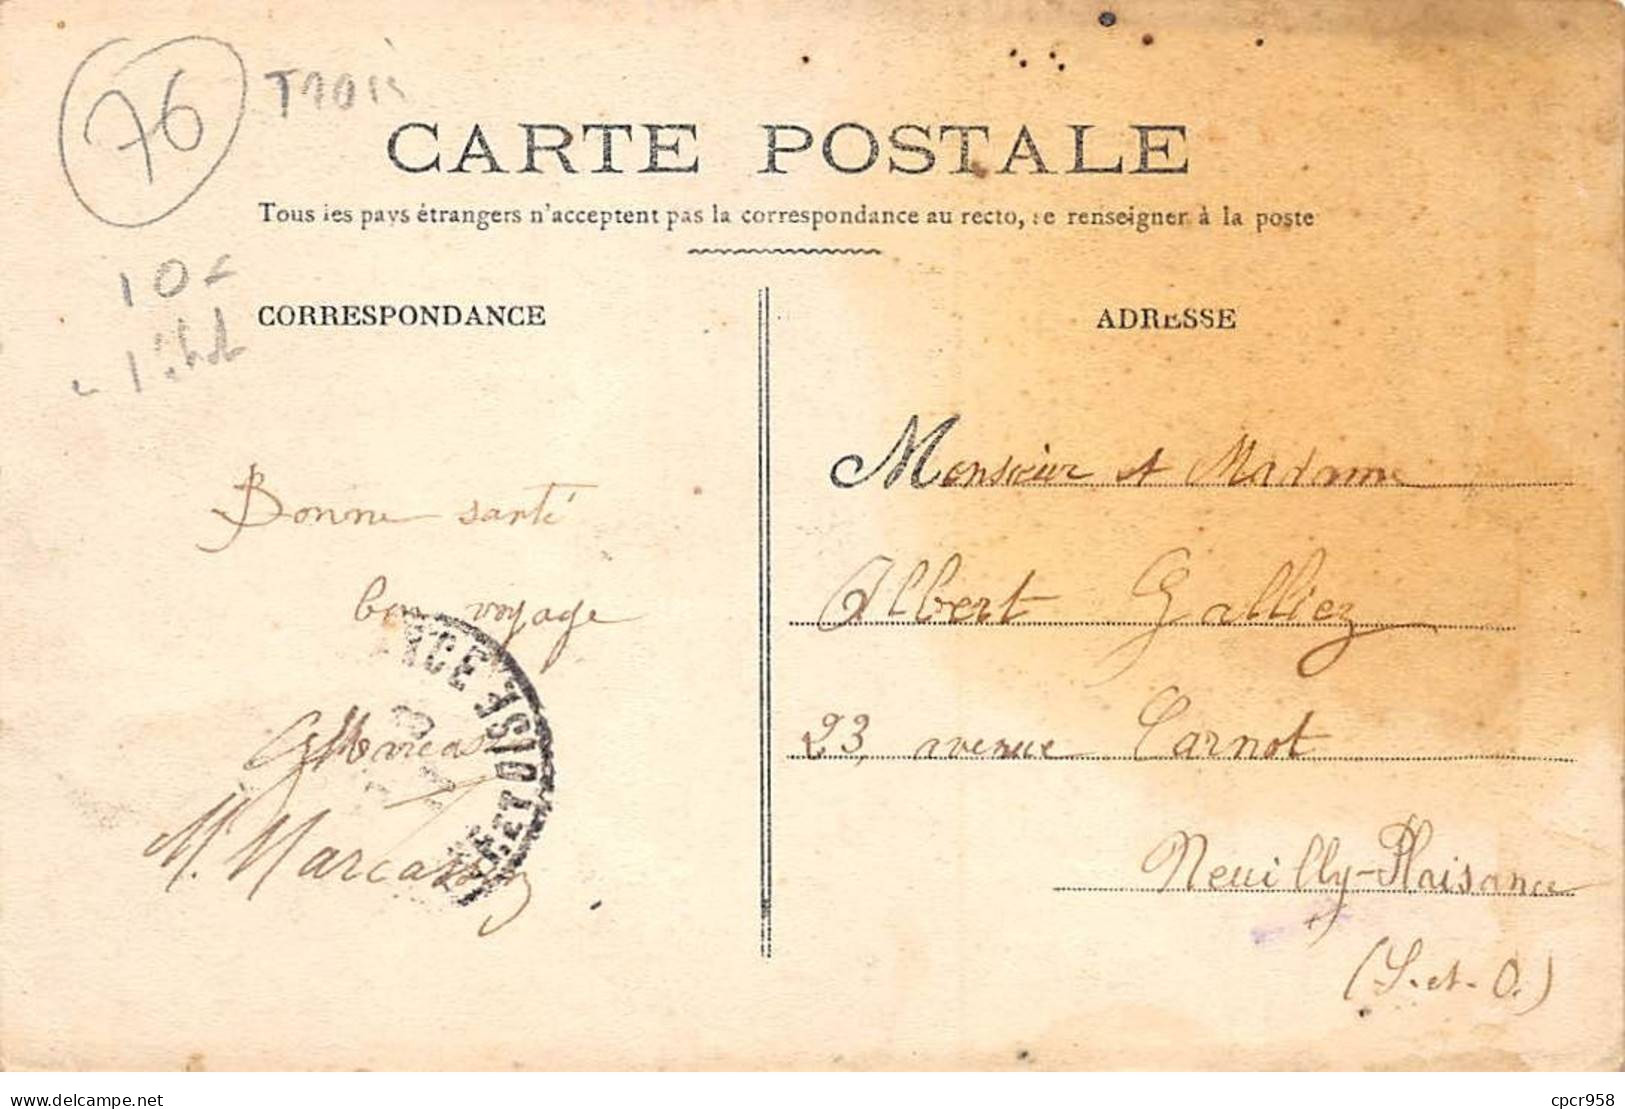 76
CARTE POSTALE
Tous les pays étrangers n'acceptent pas la correspondance au recto, se renseigner à la poste
10
CORRESPONDANCE
Bonne santé
bon voyage
M. Marcassin
ADRESSE
Monsieur et Madame
Albert Galliez
23, avenue Carnot
Neuilly-Plaisance
(S.-et-O.)
ET OISE
delcampe.net
cpcr958